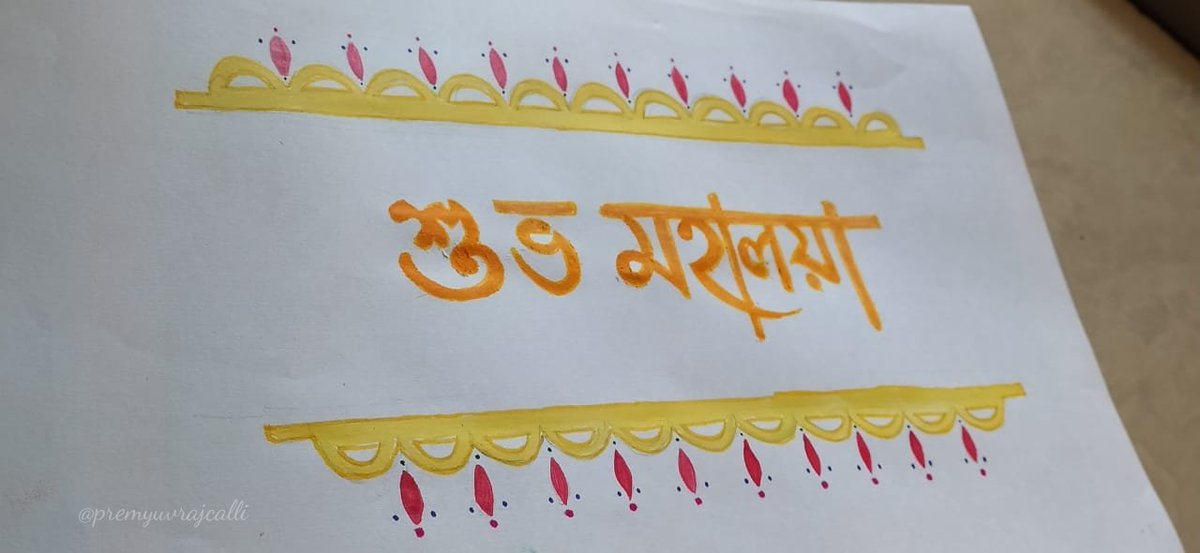 শুভ মহালয়া
@premyuvrajcalli